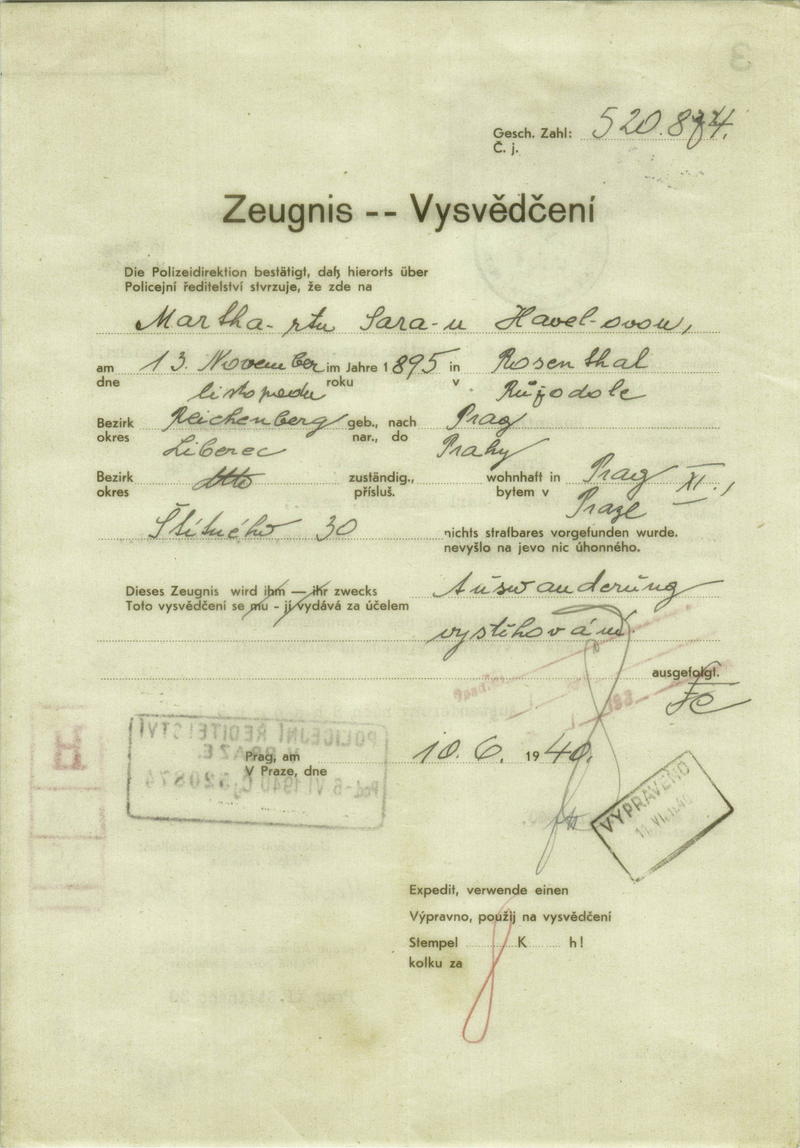 3
Gesch. Zahl: 520.874.
Č. j.
Zeugnis -- Vysvědčení
Die Polizeidirektion bestätigt, daß hierorts über
Policejní ředitelství stvrzuje, že zde na
Martha-rtu Sara-u Havel-ovou,
am 13. November im Jahre 1895 in Rosenthal
dne listopadu roku v Růžodole
Bezirk Reichenberg geb., nach Prag
okres Liberec nar., do Prahy
Bezirk zuständig., wohnhaft in Prag XI.,
okres přísluš. bytem v Praze
Štítného 30 nichts strafbares vorgefunden wurde.
nevyšlo na jevo nic úhonného.
Dieses Zeugnis wird ihm — ihr zwecks Auswanderung
Toto vysvědčení se mu - jí vydává za účelem
vystěhování
ausgefolgt.
POLICEJNÍ ŘEDITELSTVÍ
V PRAZE.
Pod. -6 VI 1940 Čj 520874
H
Prag, am 10.6. 1940.
V Praze, dne
VYPRAVENO
11. VI. 1940
Expedit, verwende einen
Výpravno, použij na vysvědčení
Stempel K h!
kolku za